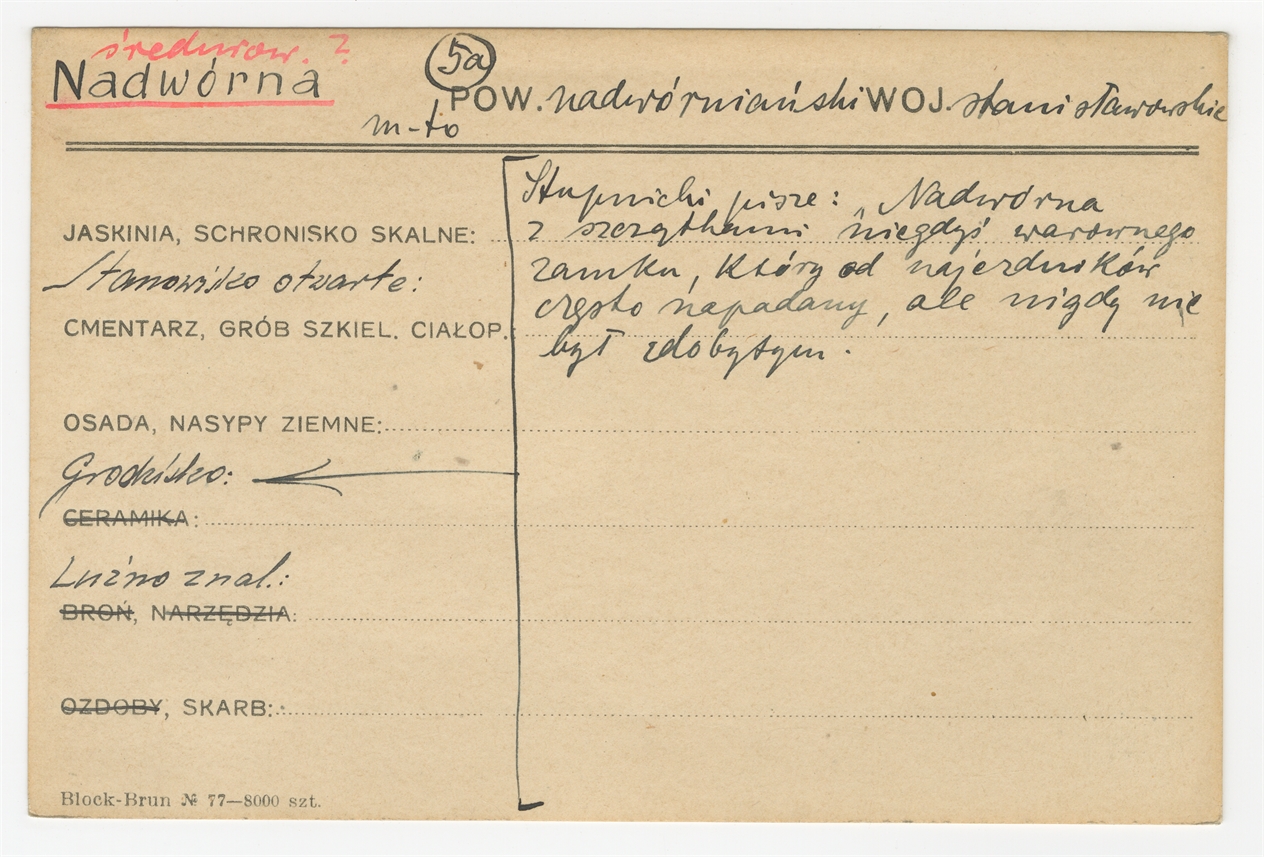 średniow. ?
Nadwórna
5a
m-to
POW. nadwórniański WOJ. stanisławowskie
Stupnicki pisze: „Nadwórna
JASKINIA, SCHRONISKO SKALNE:
z szczątkami niegdyś warownego
Stanowisko otwarte:
zamku, który od najezdników
często napadany, ale nigdy nie
CMENTARZ, GRÓB SZKIEL. CIAŁOP.:
był zdobytym.
OSADA, NASYPY ZIEMNE:
Grodzisko:
CERAMIKA:
Luźno znal.:
BROŃ, NARZĘDZIA:
OZDOBY, SKARB:
Block-Brun № 77—8000 szt.